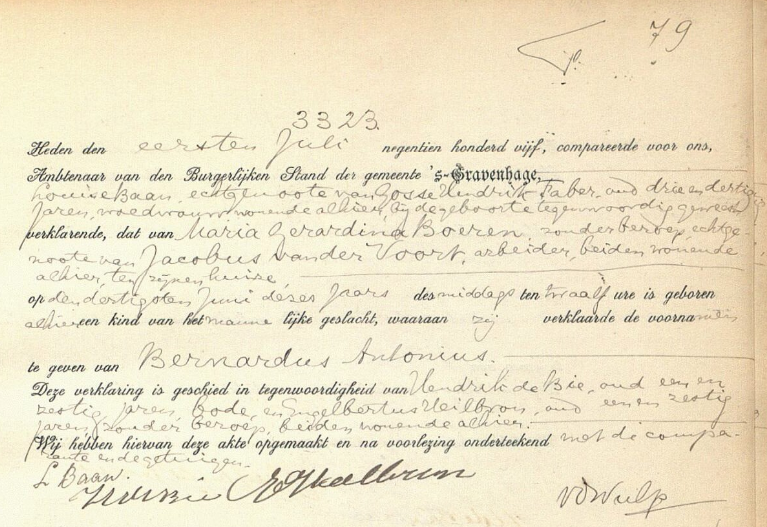 79
3323.
Heden den eersten Juli negentien honderd vijf, compareerde voor ons,
Ambtenaar van den Burgerlijken Stand der gemeente 's-Gravenhage,
Louise Baan, echtgenoote van Gosse Hendrik Faber, oud drie en dertig
jaren, vroedvrouw wonende alhier, bij de geboorte tegenwoordig geweest
verklarende, dat van Maria Gerardina Boeren, zonder beroep, echtge-
noote van Jacobus van der Voort, arbeider, beiden wonende
alhier, ten zijnen huize,
op den dertigsten Juni dezes jaars des middags ten twaalf ure is geboren
alhier een kind van het manne lijke geslacht, waaraan zij verklaarde de voornamen
te geven van Bernardus Antonius.
Deze verklaring is geschied in tegenwoordigheid van Hendrik de Bie, oud een en
zestig jaren, bode, en Engelbertus Heilbron, oud een en zestig
jaren, zonder beroep, beiden wonende alhier.
Wij hebben hiervan deze akte opgemaakt en na voorlezing onderteekend met de compa-
rante en de getuigen.
L Baan. H de Bie E Heilbron vd Wulp